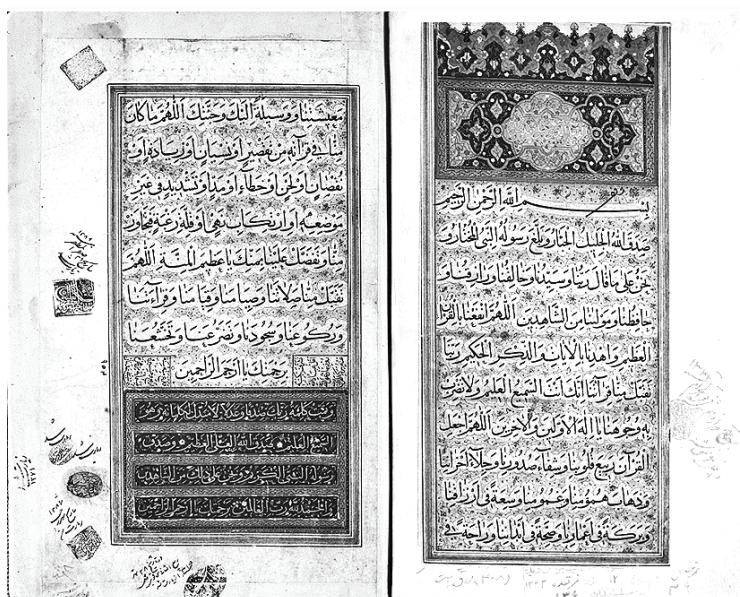 بسم الله الرحمن الرحيم
صدق الله الجليل الجبار وبلغ رسوله النبي المختار و
نحن على ما قال ربنا وسيدنا وخالقنا ورازقنا و
حافظنا ومولنا من الشاهدين اللهم انفعنا بالقرآن
العظيم واهدنا بالايات والذكر الحكيم ربنا
تقبل منا قرآتنا انك انت السميع العليم ولا تضرب
به وجوهنا يا اله الاولين والاخرين اللهم اجعل
القرآن ربيع قلوبنا وشفاء صدورنا وجلاء احزاننا
وذهاب همومنا وغمومنا وسعة في ارزاقنا
وبركة في اعمارنا وصحة في ابداننا وراحة في
معيشتنا ووسيلة اليك وجنتك اللهم ما كان
منا في قرآته من تقصير او نسيان او زيادة او
نقصان او لحن او خطاء او مد او تشديد في غير
موضعه او ارتكاب نهي او قلة رغبة فتجاوز
منا وتفضل علينا بمنك يا عظيم المنة اللهم
تقبل منا صلاتنا وصيامنا وقيامنا وقرآءتنا
وركوعنا وسجودنا وتضرعنا وتخشعنا
برحمتك يا ارحم الراحمين
وتمت كلمة ربك صدقا وعدلا لا مبدل لكلماته وهو
السميع العليم صدق الله العلي العظيم وصدق
رسوله النبي الكريم ونحن على ذلك من الشاهدين
والحمد لله رب العالمين برحمتك يا ارحم الراحمين